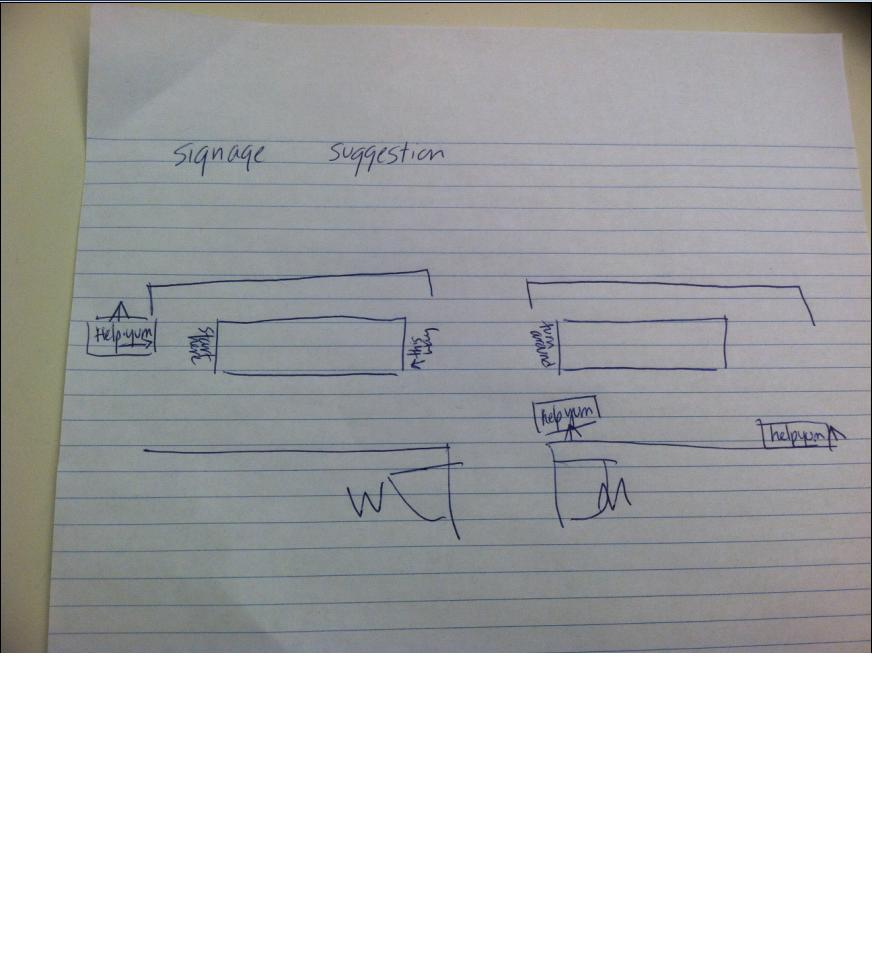 signage suggestion
Help.yum
start here
this way
turn around
helpyum
helpyum
W
M